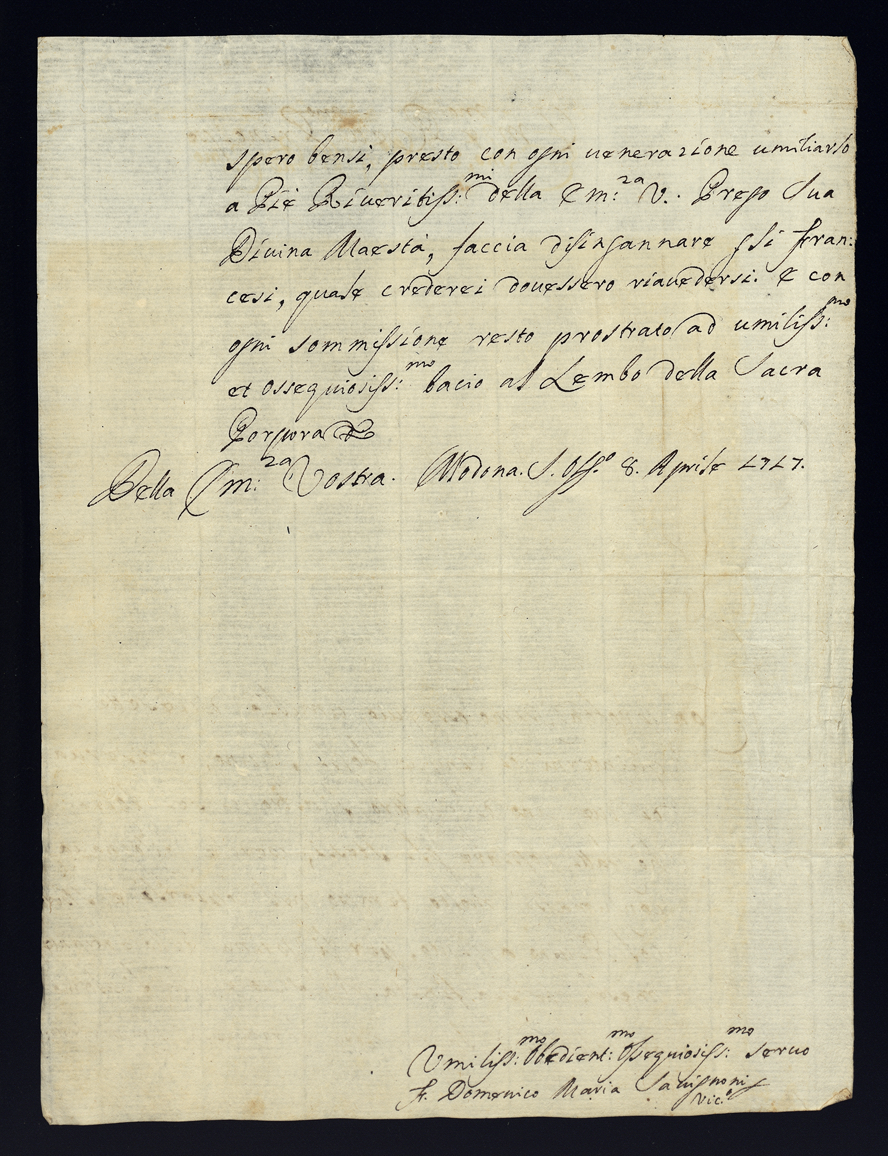 spero bensì, presto con ogni venerazione umiliarlo
a Piè Riveritiss:mi della Em:za V. Prego Sua
Divina Maestà, faccia disingannare gli Fran:
cesi, quale crederei dovessero riavedersi. E con
ogni sommissione resto prostrato ad umiliss:mo
et ossequiosiss:mo bacio al Lembo della Sacra
Porpora &
Della Em:za Vostra. Modona. S. Off.o 8. Aprile 1717.
Umiliss:mo Obedient:mo Ossequiosiss:mo servo
F. Domenico Maria
Vic.o